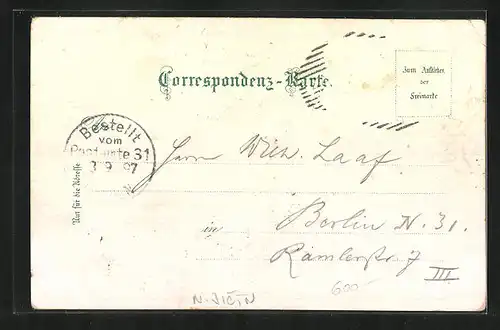 Correspondenz-Karte.
Zum Aufkleben
der
Freimarke
Bestellt
vom
Postamte 31
3 9 97
Nur für die Adresse
Herrn Wilh. Laaf
in Berlin N. 31.
Ramlerstr. 7
III
600
N-JIČIN